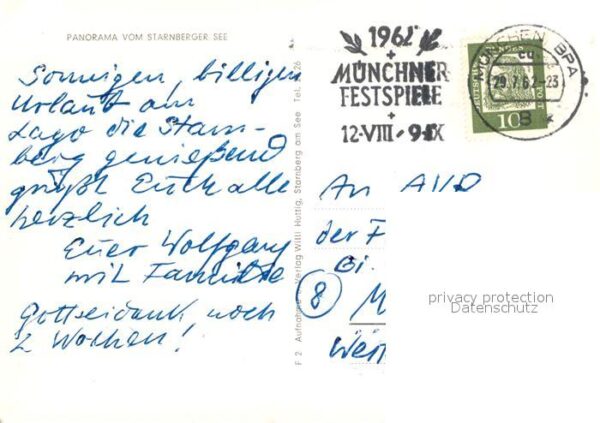 PANORAMA VOM STARNBERGER SEE
Sonnigen, billigen
Urlaub am
Lago die Starn-
berg genießend
grüßt Euch alle
herzlich
Euer Wolfgang
mit Familie
Gottseidank noch
2 Wochen!
F 2 Aufnahme Verlag Willi Huttig, Starnberg am See Tel. 26
1962
MÜNCHNER
FESTSPIELE
12·VIII - 9·IX
MÜNCHEN BPA
29.7.62-23
8
DEUTSCHE BUNDESPOST
10
An AWD
der F
Bi
8 M
West
privacy protection
Datenschutz